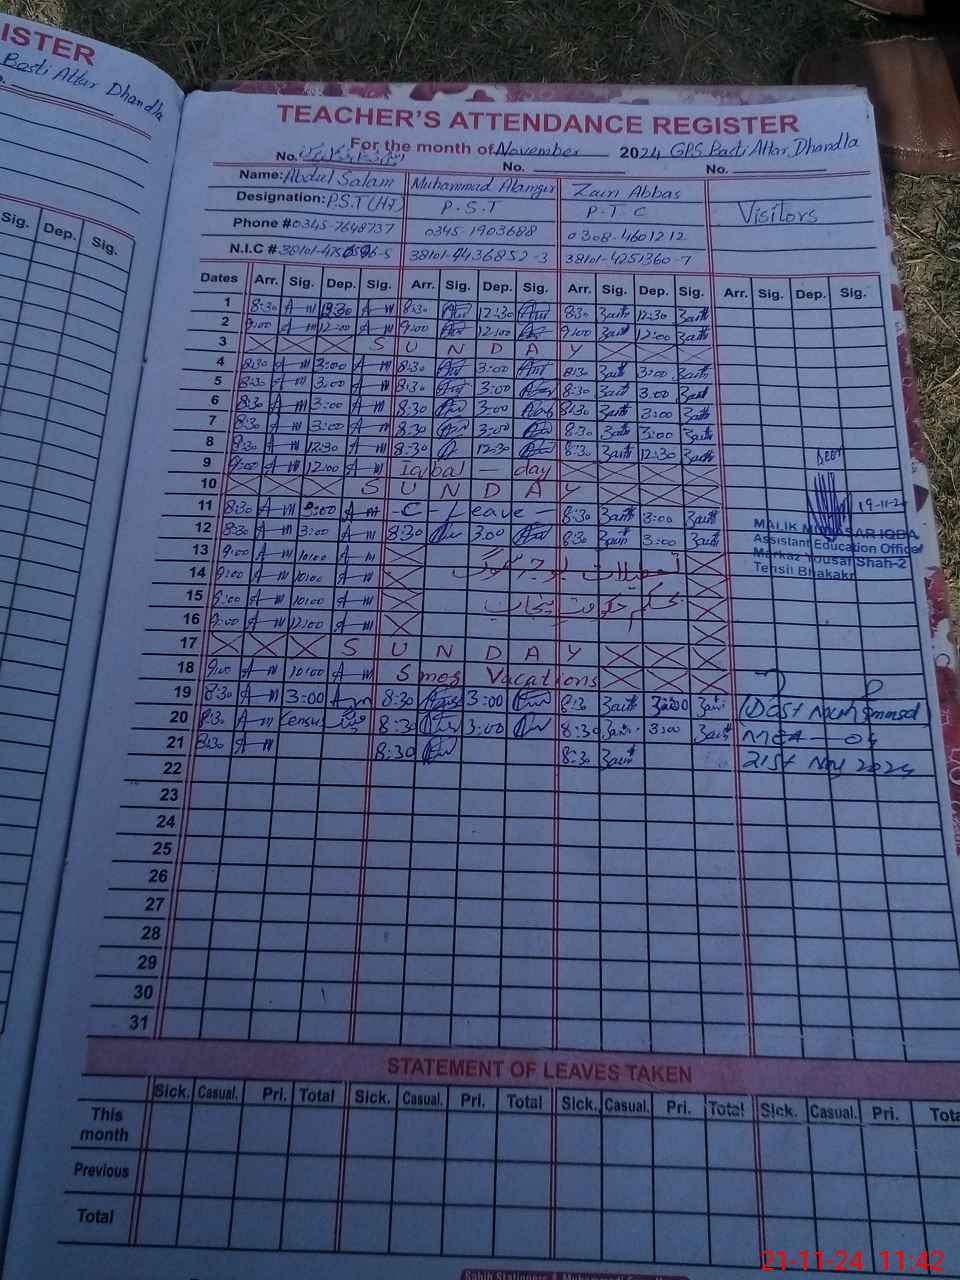 ISTER
Basti Attar Dhandla
Sig. Dep. Sig.
TEACHER'S ATTENDANCE REGISTER
For the month of November 2024 GPS Basti Attar Dhandla
No. No. No.
Name: Abdul Salam Muhammad Alamgir Zain Abbas
Designation: P.S.T (HT) P.S.T P.T.C Visitors
Phone # 0345-7648737 0345-1903688 0308-4601212
N.I.C # 38101-4436852-3 38101-4251360-7
Dates Arr. Sig. Dep. Sig. Arr. Sig. Dep. Sig. Arr. Sig. Dep. Sig. Arr. Sig. Dep. Sig.
1 8:30 12:30 8:30 12:30 8:30 Zain 12:30 Zain
2 9:00 12:00 9:00 12:00 9:00 Zain 12:00 Zain
3 S U N D A Y
4 8:30 3:00 8:30 3:00 8:30 Zain 3:00 Zain
5 8:30 3:00 8:30 3:00 8:30 Zain 3:00 Zain
6 8:30 3:00 8:30 3:00 8:30 Zain 3:00 Zain
7 8:30 3:00 8:30 3:00 8:30 Zain 3:00 Zain
8 8:30 12:30 8:30 12:30 8:30 Zain 12:30 Zain
9 9:00 12:00 Iqbal - day
10 S U N D A Y
11 8:30 3:00 - C - Leave - 8:30 Zain 3:00 Zain
12 8:30 3:00 8:30 3:00 8:30 Zain 3:00 Zain
Seen
19-11-24
MALIK MUDASAR IQBAL
Assistant Education Officer
Markaz Yousaf Shah-2
Tensil Bhakakr
13 9:00 10:00 تعطیلات بوجہ سموگ
14 9:00 10:00
15 9:00 10:00 بحکم حکومت پنجاب
16 9:00 12:00
17 S U N D A Y
18 9:00 10:00 Smog Vacations
19 8:30 3:00 8:30 3:00 8:30 Zain 3:00 Zain
20 8:30 Census 8:30 3:00 8:30 Zain 3:00 Zain
21 8:30 8:30 8:30 Zain
(Dost Muhammad)
MEA - 04
21st Nov 2024
22
23
24
25
26
27
28
29
30
31
STATEMENT OF LEAVES TAKEN
Sick. Casual. Pri. Total Sick. Casual. Pri. Total Sick. Casual. Pri. Total Sick. Casual. Pri. Tota
This month
Previous
Total
21-11-24 11:42